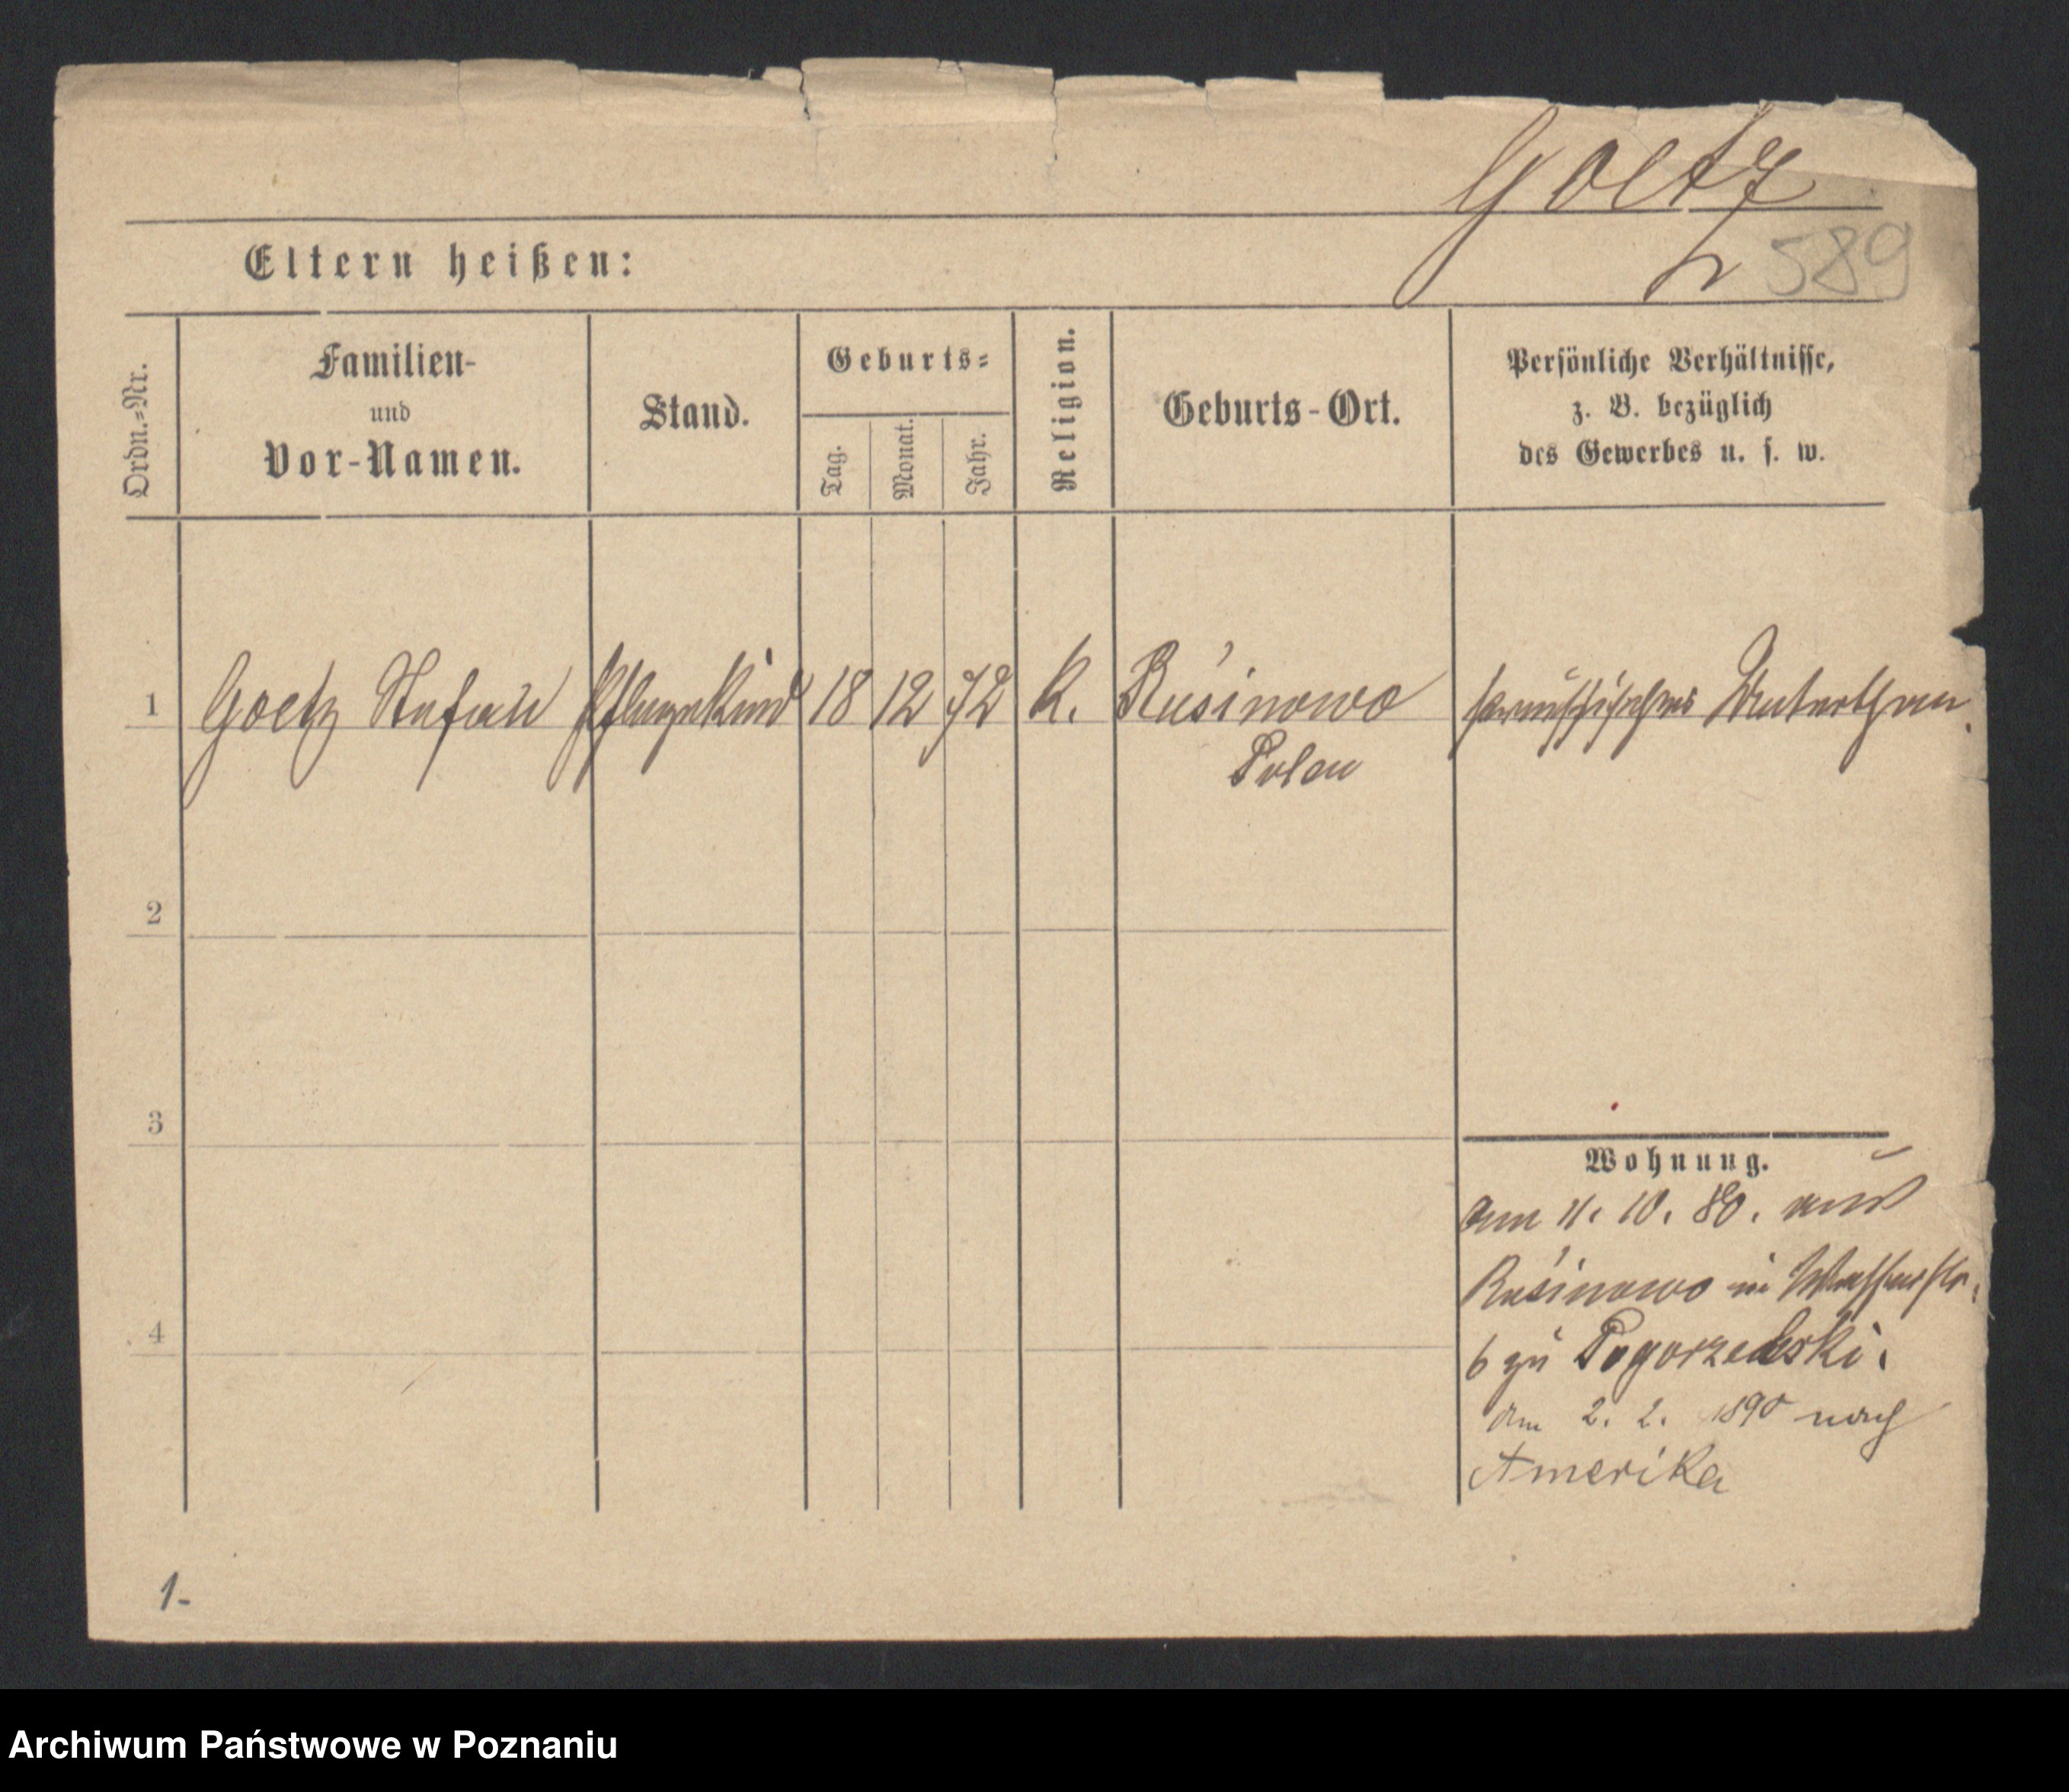 Goetz
589
Eltern heißen:
Ordn.=Nr.
Familien-
und
Vor-Namen.
Stand.
Geburts=
Tag.
Monat.
Jahr.
Religion.
Geburts-Ort.
Persönliche Verhältnisse,
z. B. bezüglich
des Gewerbes u. s. w.
1 Goetz Stefan Pflegekind 18 12 72 K. Rusinowo Unterthan
Polen
2
3
4
Wohnung.
am 11. 10. 80. aus
Rusinowo in Wasserstr.
6 zu Pogorzelski.
am 2. 2. 1890 nach
Amerika
1-
Archiwum Państwowe w Poznaniu